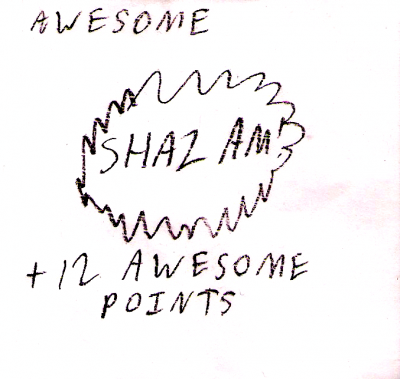 AWESOME
SHAZAM
+12 AWESOME
POINTS